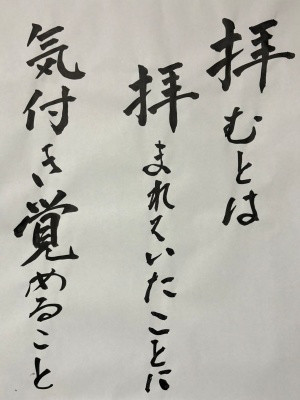 拝むとは
拝まれていたことに
気付き覚めること